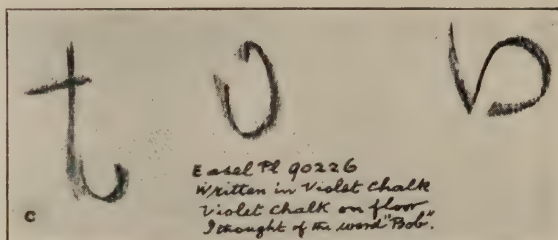 t o b
Easel Pl 90226
Written in Violet Chalk
Violet Chalk on floor
I thought of the word "Bob".
C